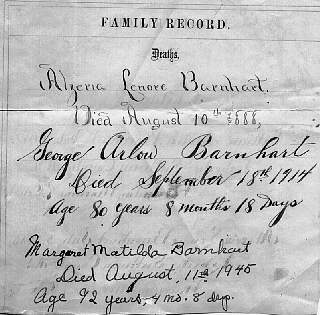 FAMILY RECORD.
Deaths.
Alzena Lenore Barnhart.
Died August 10th 1888,
George Arlow Barnhart
Died September 18th 1914
Age 80 years 8 months 18 Days
Margaret Matilda Barnhart
Died August, 11th 1945
Age 92 years, 4 mo. 8 dys.